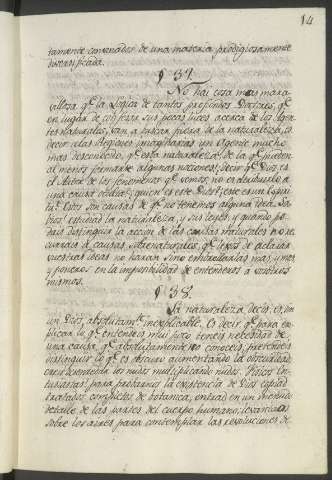 14
tamente emanados de una materia prodigiosamente
diversificada.
§ 37.
No hai cosa mas mara-
villosa qe. la Logica de tantos profundos Doctores, qe.
en lugar de confesar sus pocas luces acerca de los Agen-
tes naturales, van a buscar fuera de la naturaleza, es
decir a las Regiones imaginarias un Agente mucho
mas desconocido, qe. esta naturaleza, de la qe. pueden
al menos formarse algunas nociones. decir qe. Dios es
el Autor de los fenomenos qe. vemos, no es atribuirlo a
una causa oculta? quien es este Dios? este es un Espiri-
tu. Estos son causas de qe. no tenemos alguna idea. Sa-
bios! estudiad la naturaleza, y sus leyes, y quando po-
dais distinguir la accion de las causas naturales no re-
currais a causas sobrenaturales, qe. lejos de aclarar
vuestras ideas no haran sino embrollarlas mas, y mas
y poneros en la imposibilidad de entenderos a vosotros
mismos.
§ 38.
La naturaleza, decis, es, sin
un Dios, absolutamte. inexplicable. Es decir qe. para ex-
plicar lo qe. entendeis mui poco teneis necesidad de
una causa, qe. absolutamente no conoceis, pretendeis
distinguir lo qe. es obscuro aumentando la obscuridad
creeis desatar los nudos multiplicando nudos. Fisicos En-
tusiastas! para probarnos la existencia de Dios copiad
tratados completos de botanica, entrad en un menudo
detalle de las partes del cuerpo humano, levantaos
sobre los aires para contemplar las revoluciones de